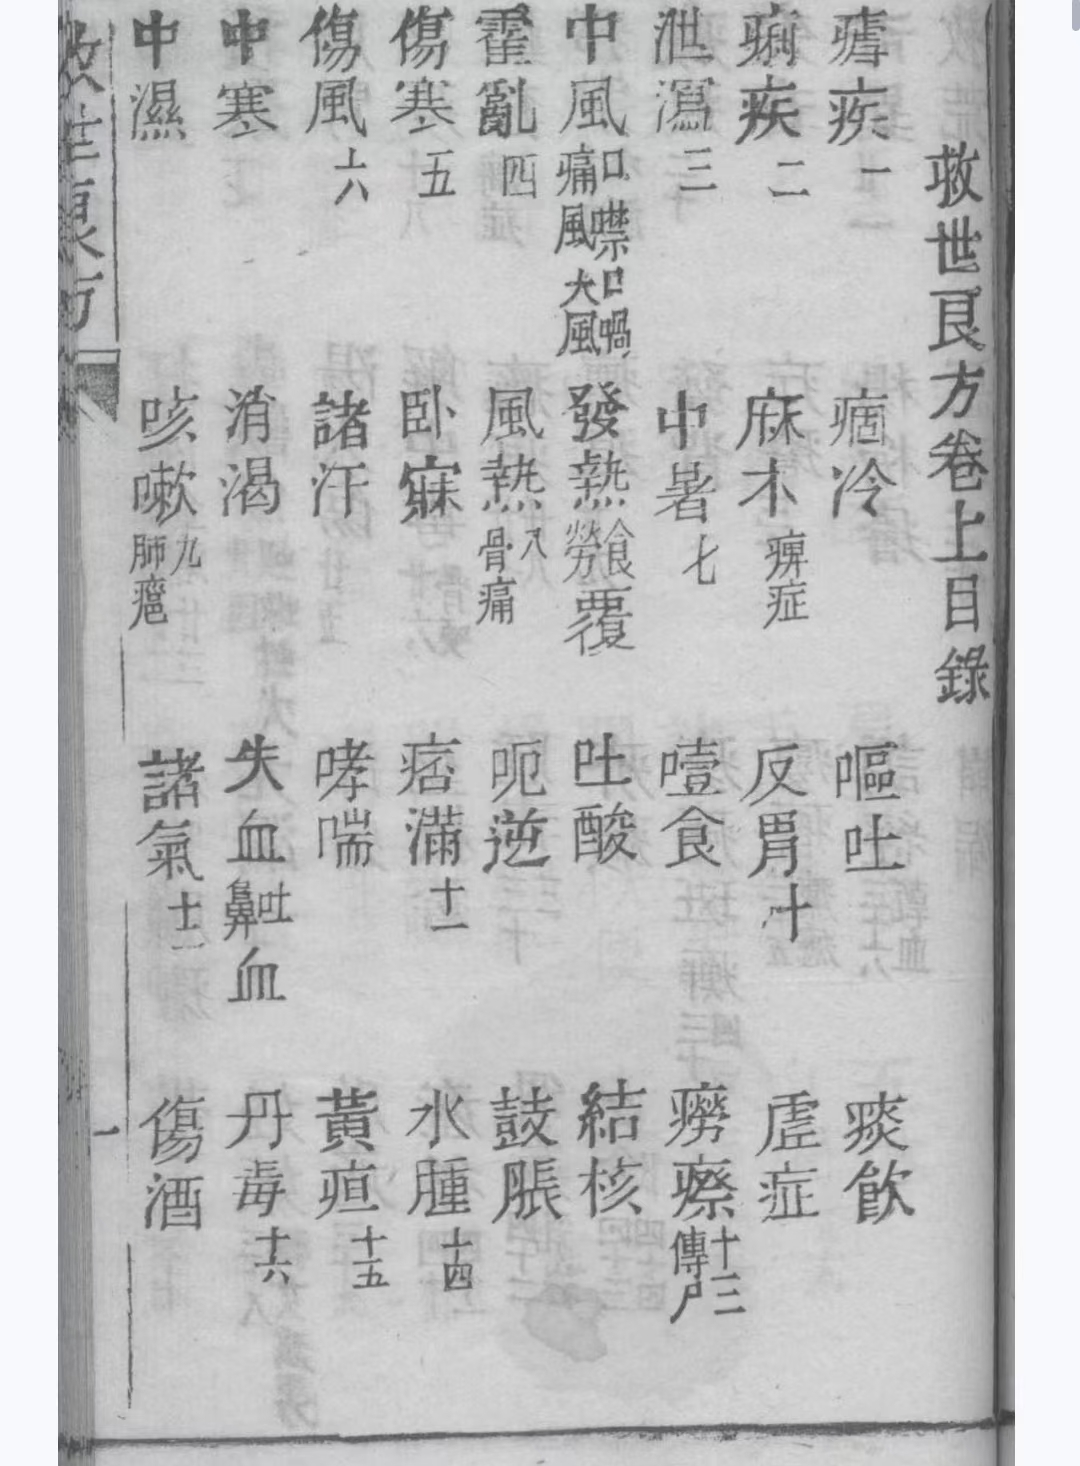 救世良方卷上目錄
瘧疾一 痼冷 嘔吐 痰飲
痢疾二 麻木痹症 反胃十 虛症
泄瀉三 中暑七 噎食 癆瘵十三傳尸
中風口噤口喎痛風大風 發熱食勞覆 吐酸 結核
霍亂四 風熱八骨痛 呃逆 鼓脹
傷寒五 臥寐 痞滿十一 水腫十四
傷風六 諸汗 哮喘 黃疸十五
中寒 消渴 失血吐鼻血 丹毒十六
中濕 咳嗽九肺癰 諸氣十二 傷酒
救世良方 一